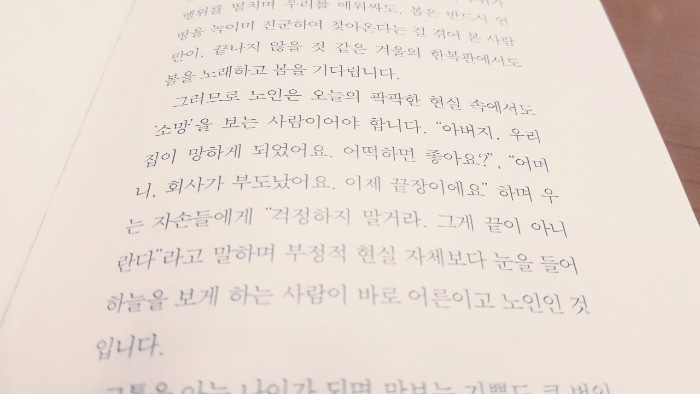 맹위를 떨치며 우리를 에워싸도, 봄은 반드시 언
땅을 녹이며 진군하여 찾아온다는 걸 겪어 본 사람
만이, 끝나지 않을 것 같은 겨울의 한복판에서도
봄을 노래하고 봄을 기다립니다.
그러므로 노인은 오늘의 팍팍한 현실 속에서도
‘소망’을 보는 사람이어야 합니다. “아버지, 우리
집이 망하게 되었어요. 어떡하면 좋아요?”, “어머
니, 회사가 부도났어요. 이제 끝장이에요” 하며 우
는 자손들에게 “걱정하지 말거라. 그게 끝이 아니
란다”라고 말하며 부정적 현실 자체보다 눈을 들어
하늘을 보게 하는 사람이 바로 어른이고 노인인 것
입니다.
고통을 아는 나이가 되면 맛보는 기쁨도 큰 법인